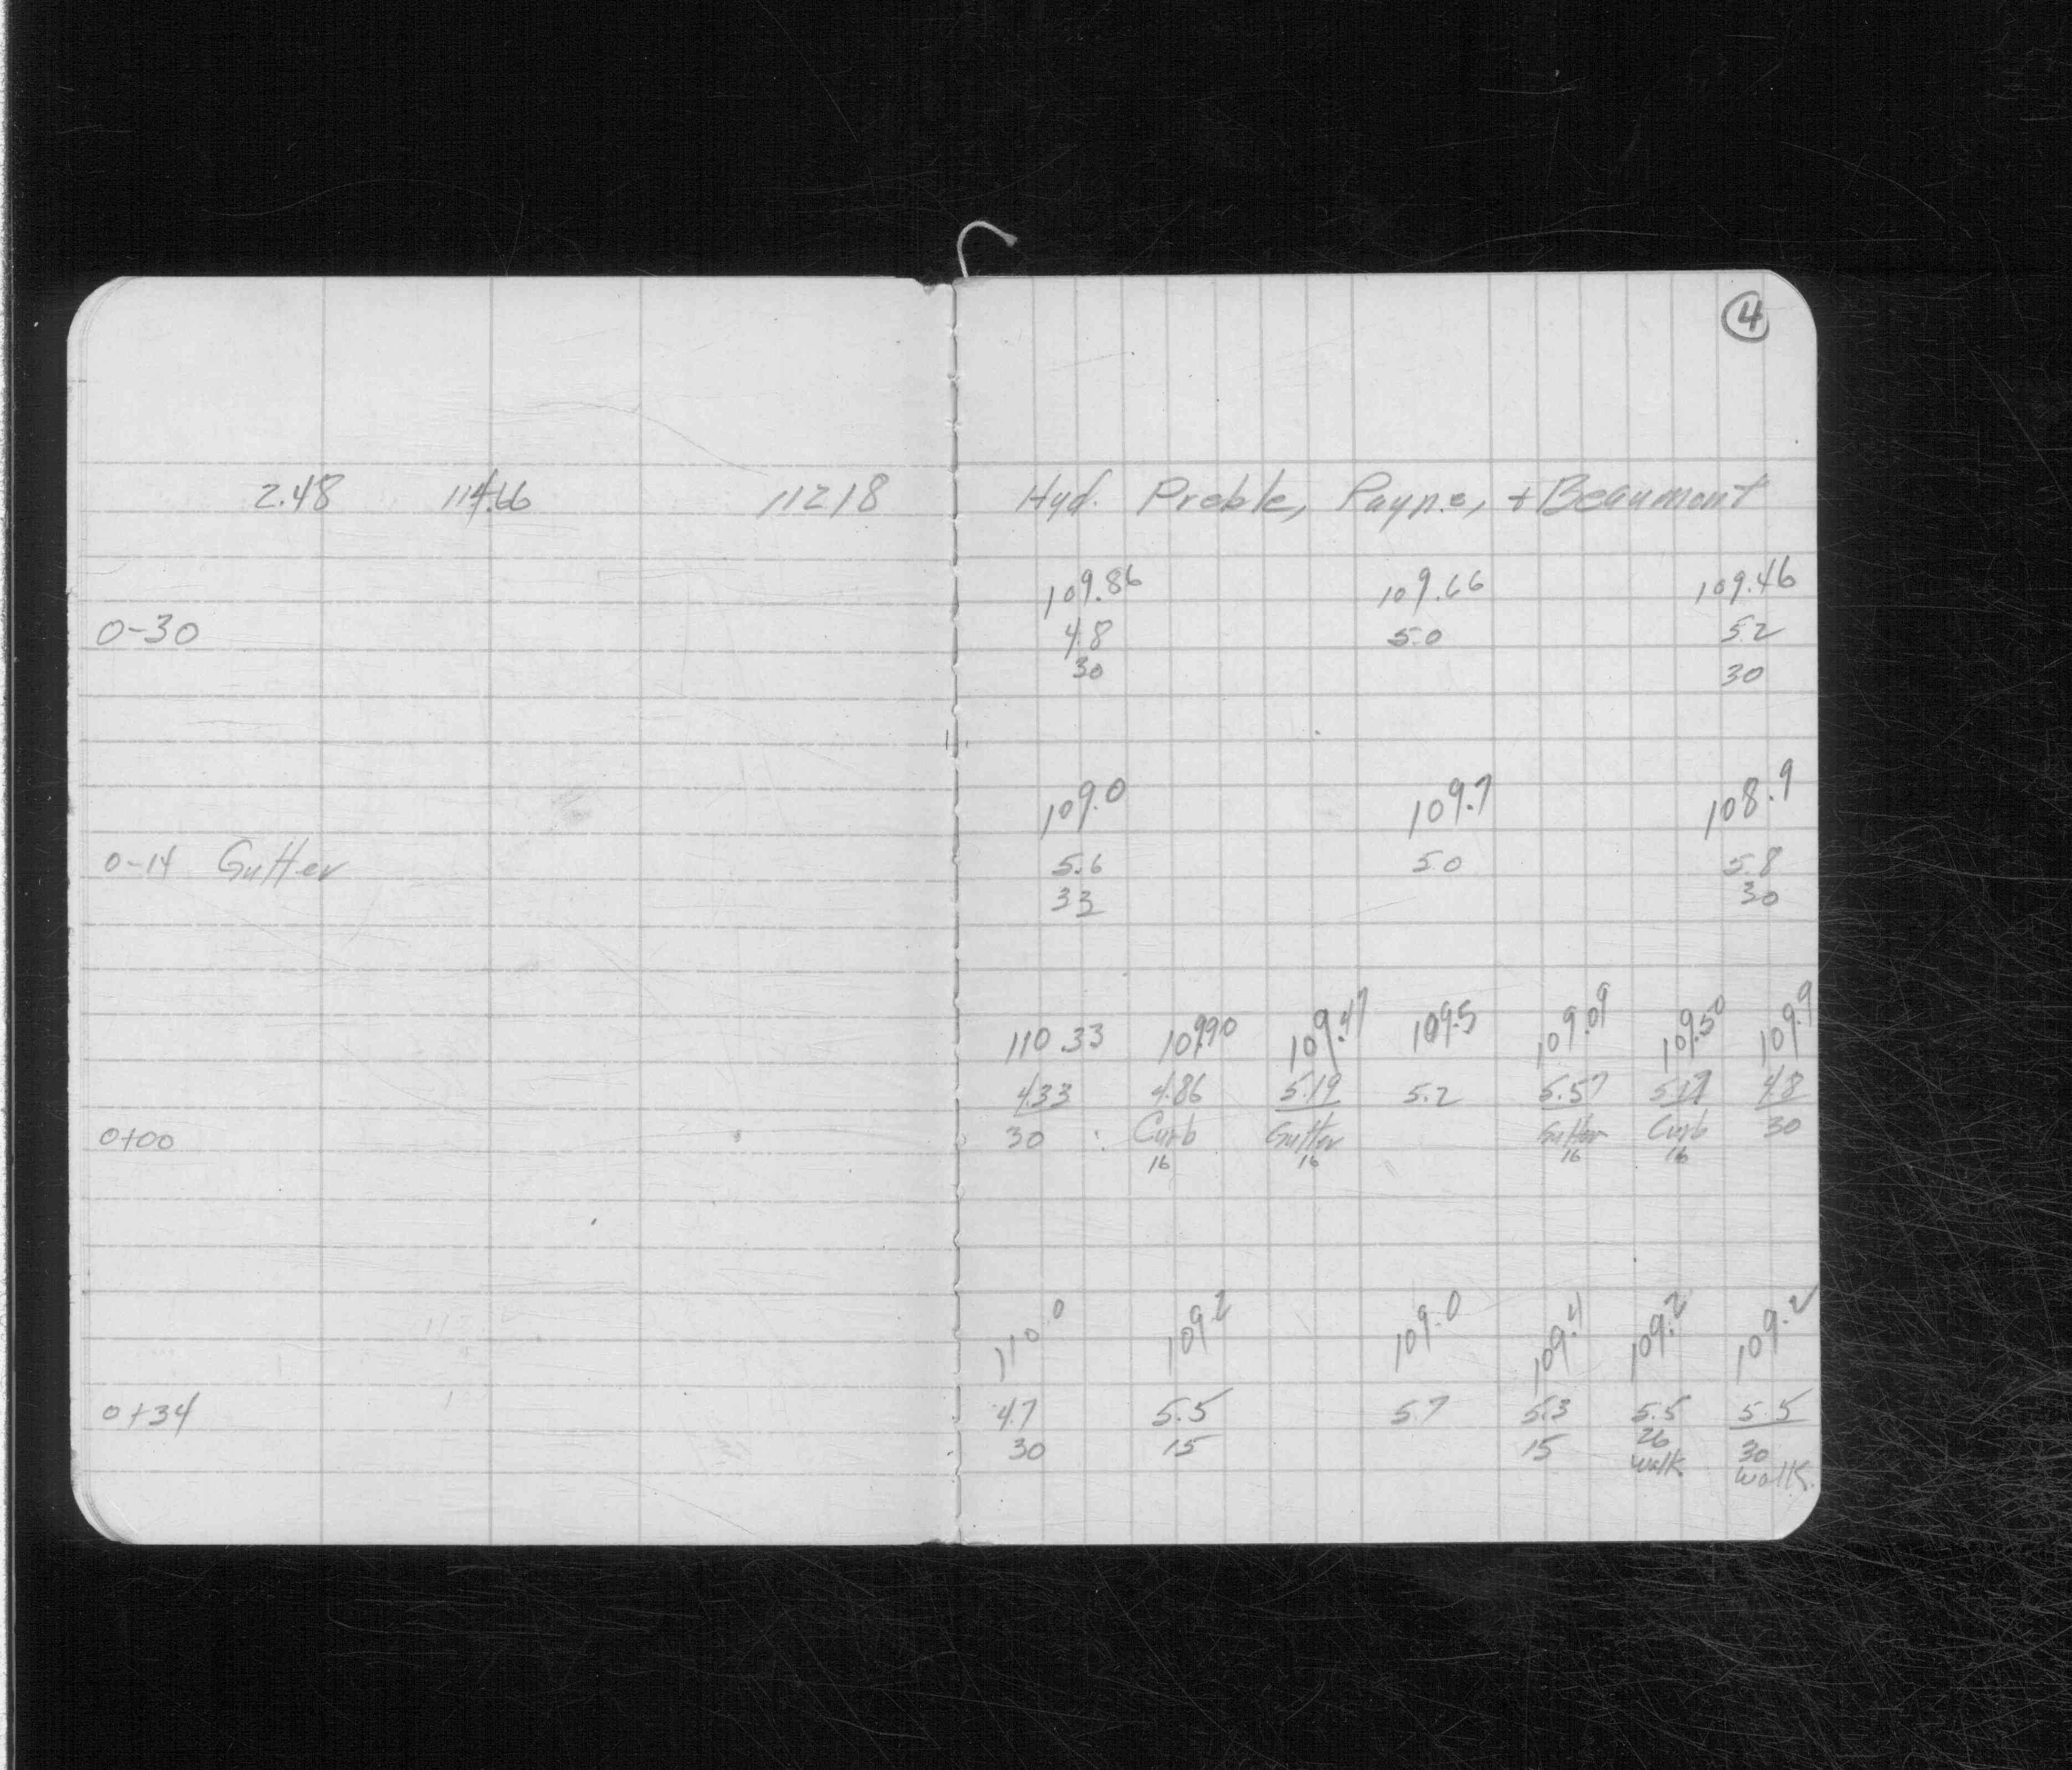 4
2.48 114.66 112.18 Hyd. Preble, Payne, + Beaumont
109.86 109.66 109.46
0-30 4.8 5.0 5.2
30 30
109.0 109.7 108.9
0-14 Gutter 5.6 5.0 5.8
33 30
110.33 109.90 109.47 109.5 109.09 109.50 109.9
4.33 4.86 5.19 5.2 5.57 5.17 4.8
0+00 30 Curb Gutter Gutter Curb 30
16 16 16 16
110.0 109.2 109.0 109.4 109.2 109.2
0+34 4.7 5.5 5.7 5.3 5.5 5.5
30 15 15 26 30
walk walk